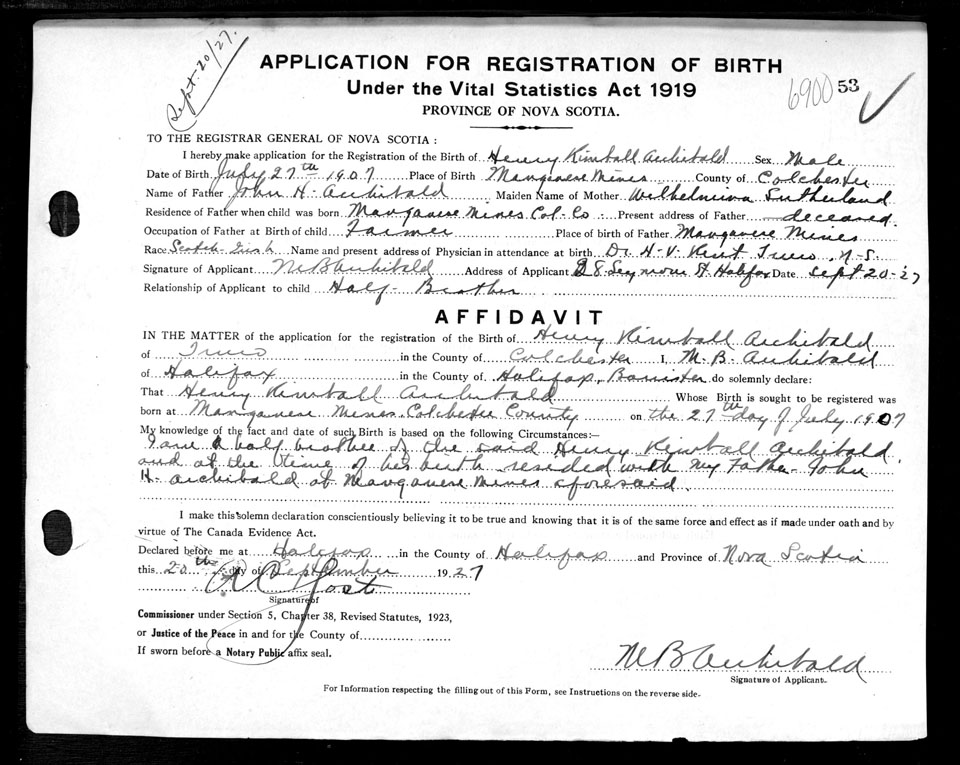 Sept. 20/27.
APPLICATION FOR REGISTRATION OF BIRTH
Under the Vital Statistics Act 1919
PROVINCE OF NOVA SCOTIA.
6900 53
TO THE REGISTRAR GENERAL OF NOVA SCOTIA :
I hereby make application for the Registration of the Birth of Henry Kimball Archibald Sex Male
Date of Birth July 27th 1907 Place of Birth Manganese Mines County of Colchester
Name of Father John H. Archibald Maiden Name of Mother Wilhelmina Sutherland
Residence of Father when child was born Manganese Mines Col. Co Present address of Father deceased.
Occupation of Father at Birth of child Farmer Place of birth of Father Manganese Mines
Race Scotch-Irish Name and present address of Physician in attendance at birth Dr. H. V. Kent Truro, N.S.
Signature of Applicant M B Archibald Address of Applicant 28 Seymour St Halifax Date Sept 20-'27
Relationship of Applicant to child Half-Brother
AFFIDAVIT
IN THE MATTER of the application for the registration of the Birth of Henry Kimball Archibald
of Truro in the County of Colchester I, M. B. Archibald
of Halifax in the County of Halifax, Barrister do solemnly declare:
That Henry Kimball Archibald Whose Birth is sought to be registered was
born at Manganese Mines, Colchester County on the 27th day of July 1907
My knowledge of the fact and date of such Birth is based on the following Circumstances:—
I am a half brother of the said Henry Kimball Archibald
and at the time of his birth resided with my Father John
H. Archibald at Manganese Mines aforesaid.
I make this solemn declaration conscientiously believing it to be true and knowing that it is of the same force and effect as if made under oath and by
virtue of The Canada Evidence Act.
Declared before me at Halifax in the County of Halifax and Province of Nova Scotia
this 20th day of September 1927
Jost
Signature of
Commissioner under Section 5, Chapter 38, Revised Statutes, 1923,
or Justice of the Peace in and for the County of
If sworn before a Notary Public affix seal.
M B Archibald
Signature of Applicant.
For Information respecting the filling out of this Form, see Instructions on the reverse side.